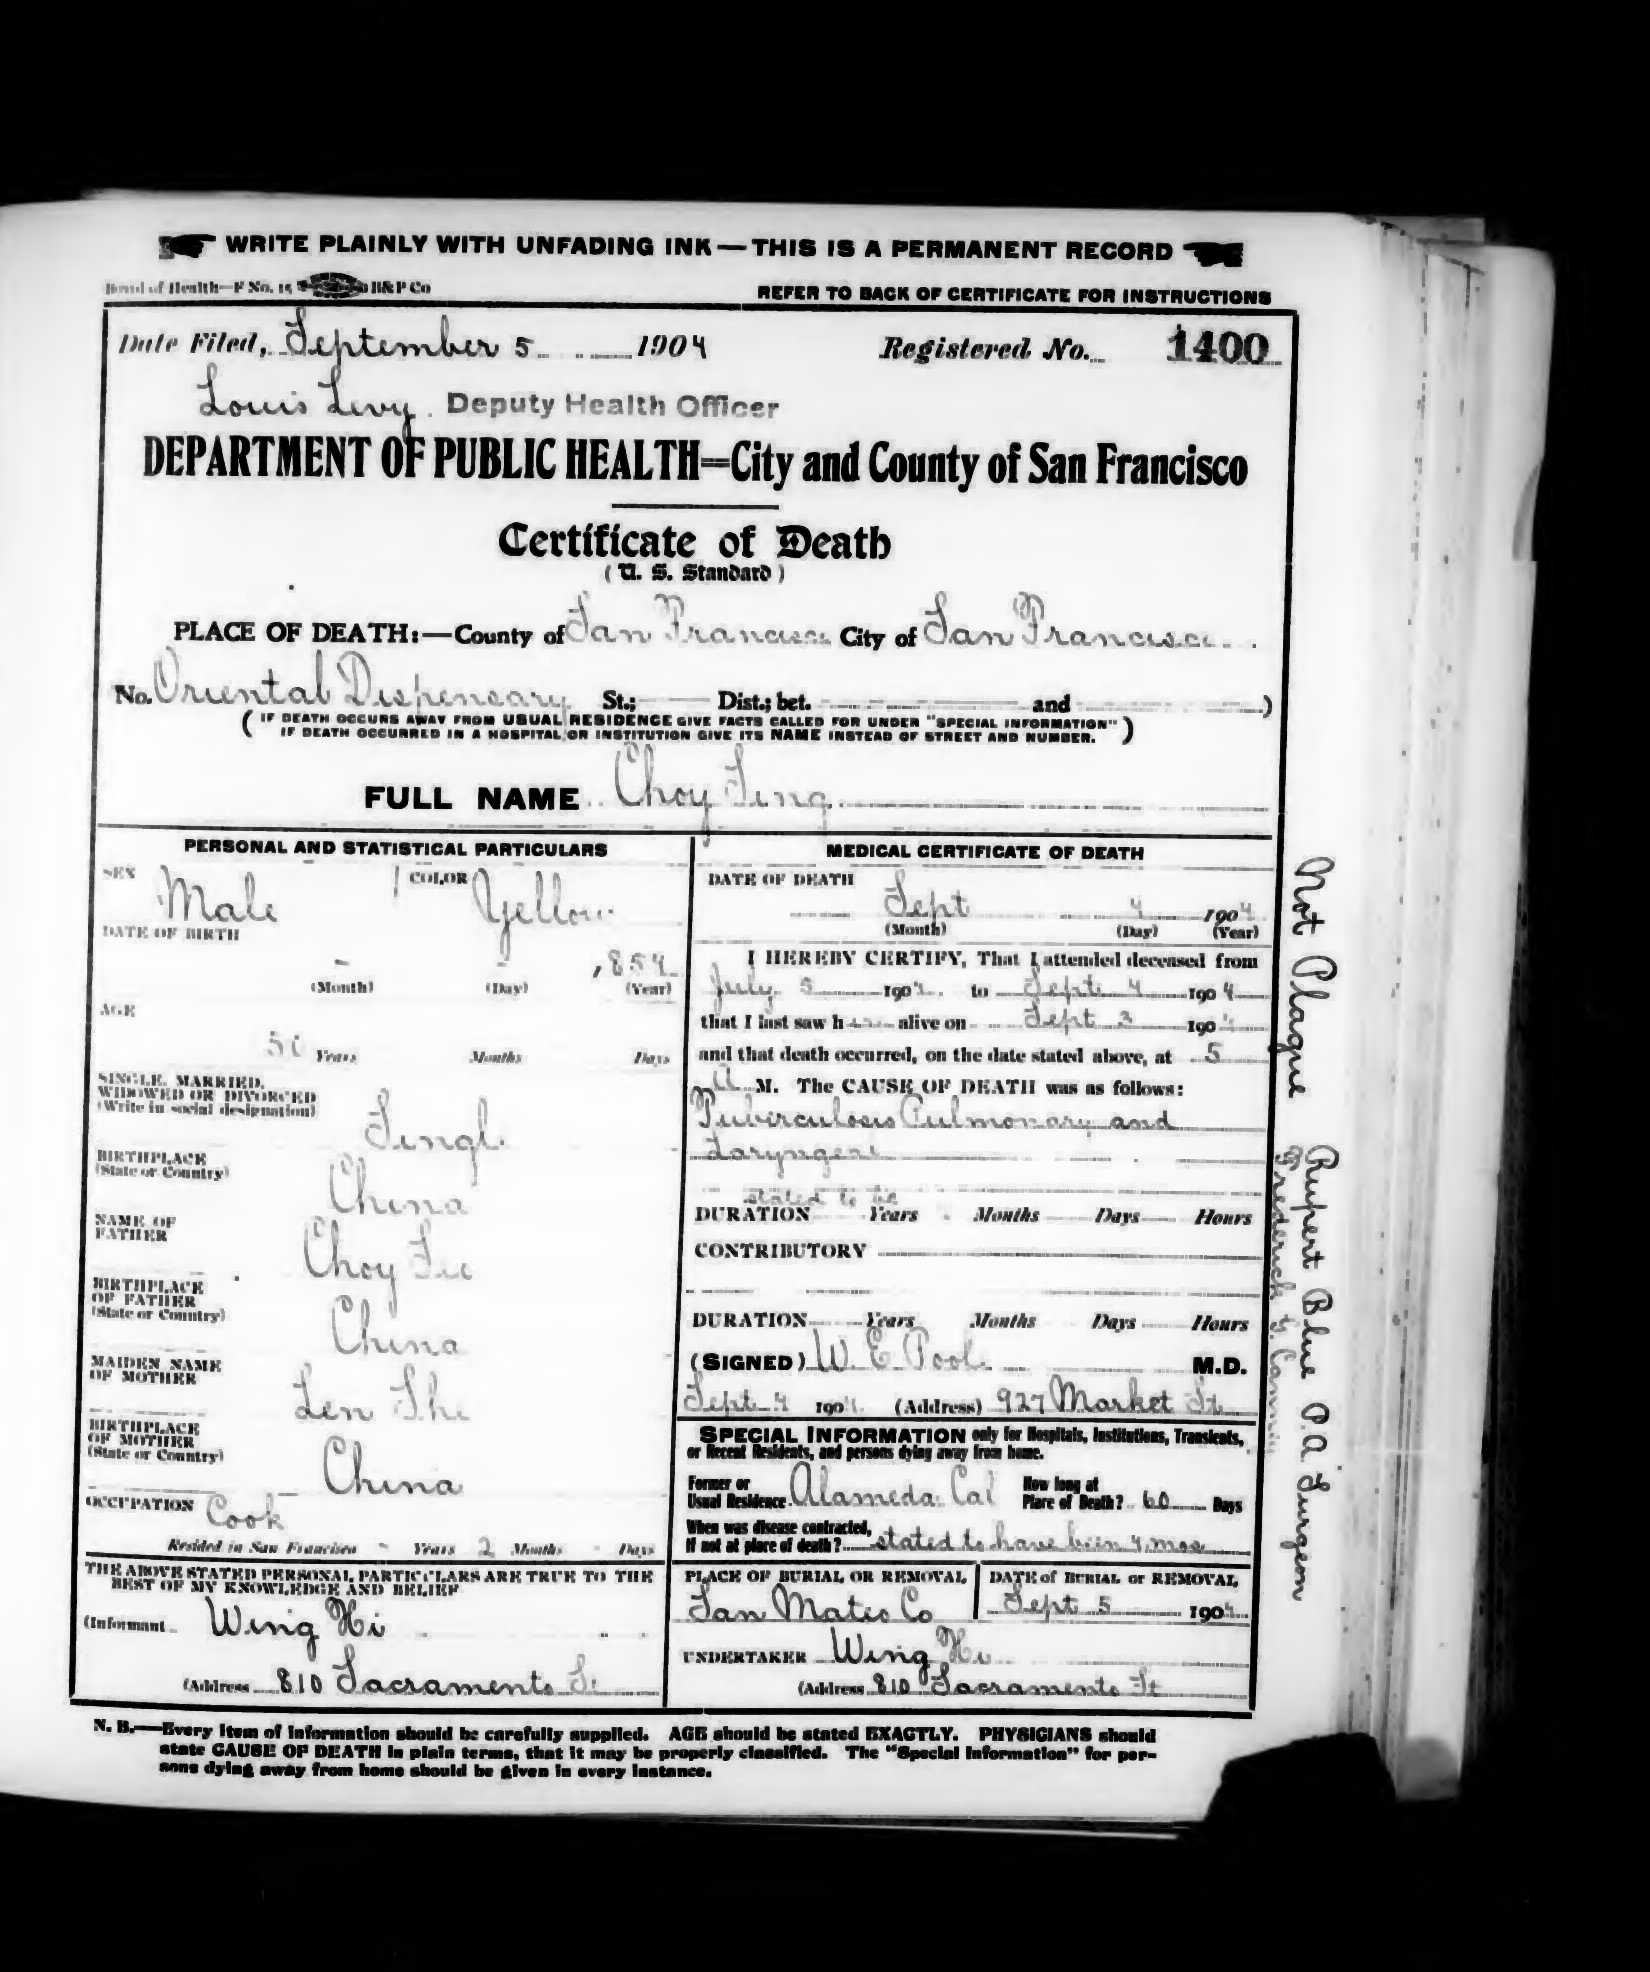 WRITE PLAINLY WITH UNFADING INK — THIS IS A PERMANENT RECORD
Board of Health—F No. 15 H&P Co
REFER TO BACK OF CERTIFICATE FOR INSTRUCTIONS
Date Filed, September 5 1904 Registered No. 1400
Louis Levy Deputy Health Officer
DEPARTMENT OF PUBLIC HEALTH=City and County of San Francisco
Certificate of Death
( U. S. Standard )
PLACE OF DEATH:—County of San Francisco City of San Francisco
No. Oriental Dispensary St.; Dist.; bet. and )
( IF DEATH OCCURS AWAY FROM USUAL RESIDENCE GIVE FACTS CALLED FOR UNDER "SPECIAL INFORMATION"
IF DEATH OCCURRED IN A HOSPITAL OR INSTITUTION GIVE ITS NAME INSTEAD OF STREET AND NUMBER. )
FULL NAME Choy Sing
PERSONAL AND STATISTICAL PARTICULARS
SEX Male COLOR Yellow
DATE OF BIRTH
1854
(Month) (Day) (Year)
AGE
50 Years Months Days
SINGLE, MARRIED,
WIDOWED OR DIVORCED
(Write in social designation)
Single
BIRTHPLACE
(State or Country)
China
NAME OF
FATHER
Choy
BIRTHPLACE
OF FATHER
(State or Country)
China
MAIDEN NAME
OF MOTHER
Len She
BIRTHPLACE
OF MOTHER
(State or Country)
China
OCCUPATION Cook
Resided in San Francisco - Years 2 Months - Days
THE ABOVE STATED PERSONAL PARTICULARS ARE TRUE TO THE
BEST OF MY KNOWLEDGE AND BELIEF
(Informant Wing Hi
(Address 810 Sacramento St
MEDICAL CERTIFICATE OF DEATH
DATE OF DEATH
Sept 4 1904
(Month) (Day) (Year)
I HEREBY CERTIFY, That I attended deceased from
July 5 1904 to Sept 4 1904
that I last saw him alive on Sept 3 1904
and that death occurred, on the date stated above, at 5
A M. The CAUSE OF DEATH was as follows:
Tuberculosis Pulmonary and
Laryngeal
stated to be
DURATION Years Months Days Hours
CONTRIBUTORY
DURATION Years Months Days Hours
(SIGNED) W. E. Pool M.D.
Sept 4 1904 (Address) 927 Market St
SPECIAL INFORMATION only for Hospitals, Institutions, Transients,
or Recent Residents, and persons dying away from home.
Former or
Usual Residence Alameda Cal
How long at
Place of Death? 60 Days
When was disease contracted,
If not at place of death? stated to have been 4 mos
PLACE OF BURIAL OR REMOVAL
San Mateo Co
DATE of BURIAL or REMOVAL
Sept 5 1904
UNDERTAKER Wing Hi
(Address 810 Sacramento St
N. B.—Every item of information should be carefully supplied. AGE should be stated EXACTLY. PHYSICIANS should
state CAUSE OF DEATH in plain terms, that it may be properly classified. The "Special Information" for per-
sons dying away from home should be given in every instance.
Not Plague
Rupert Blue P.A. Surgeon
Frederick G. Canney